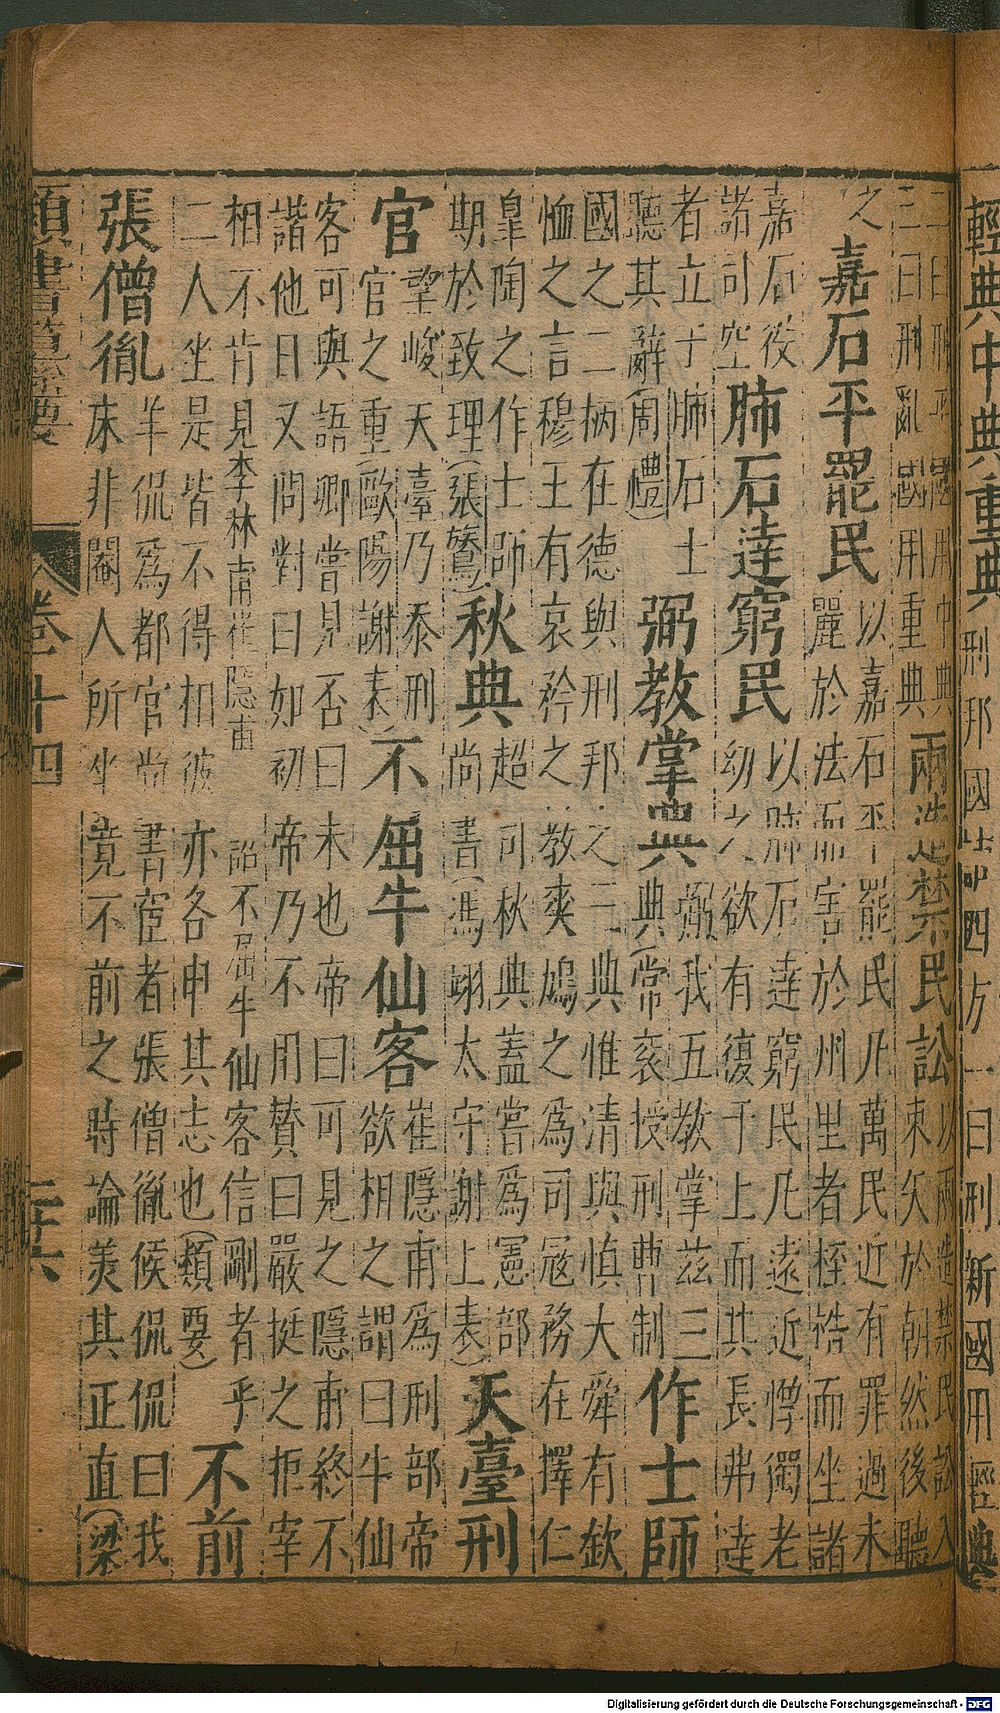 輕典中典重典
刑邦國詰四方一曰刑新國用輕典
二曰刑平國用中典
三曰刑亂國用重典
兩造禁民訟
以兩造禁民訟入
束矢於朝然後聽
之
嘉石平罷民
以嘉石平罷民凡萬民近有罪過未
麗於法而害於州里者桎梏而坐諸
嘉石役
諸司空
肺石達窮民
以肺石達窮民凡遠近惸獨老
幼之欲有復于上而其長弗達
者立于肺石士
聽其辭(周禮)
弼教掌典
弼我五教掌茲三
典(常袞授刑曹制
作士師
國之二柄在德與刑邦之三典惟清與慎大舜有欽
恤之言穆王有哀矜之教爽鳩之爲司寇務在擇仁
皐陶之作士師
期於致理(張鷟)
秋典
超司秋典蓋嘗爲憲部
尚書(馮翊太守謝上表)
天臺刑
官
望峻天臺乃忝刑
官之重(歐陽謝表)
不屈牛仙客
崔隱甫爲刑部帝
欲相之謂曰牛仙
客可與語卿嘗見否曰未也帝曰可見之隱甫終不
諧他日又問對曰如初帝乃不用贊曰嚴挺之拒宰
相不肯見李林甫崔隱甫詔不屈牛仙客信剛者乎
二人坐是皆不得相彼亦各申其志也(類要)
不前
張僧胤
羊侃爲都官尚書宦者張僧胤候侃侃曰我
床非閹人所坐竟不前之時論美其正直(梁
類書纂要 卷十四 二十六
Digitalisierung gefördert durch die Deutsche Forschungsgemeinschaft - DFG